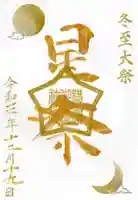 冬至大祭
星祭
令和三年十二月十九日